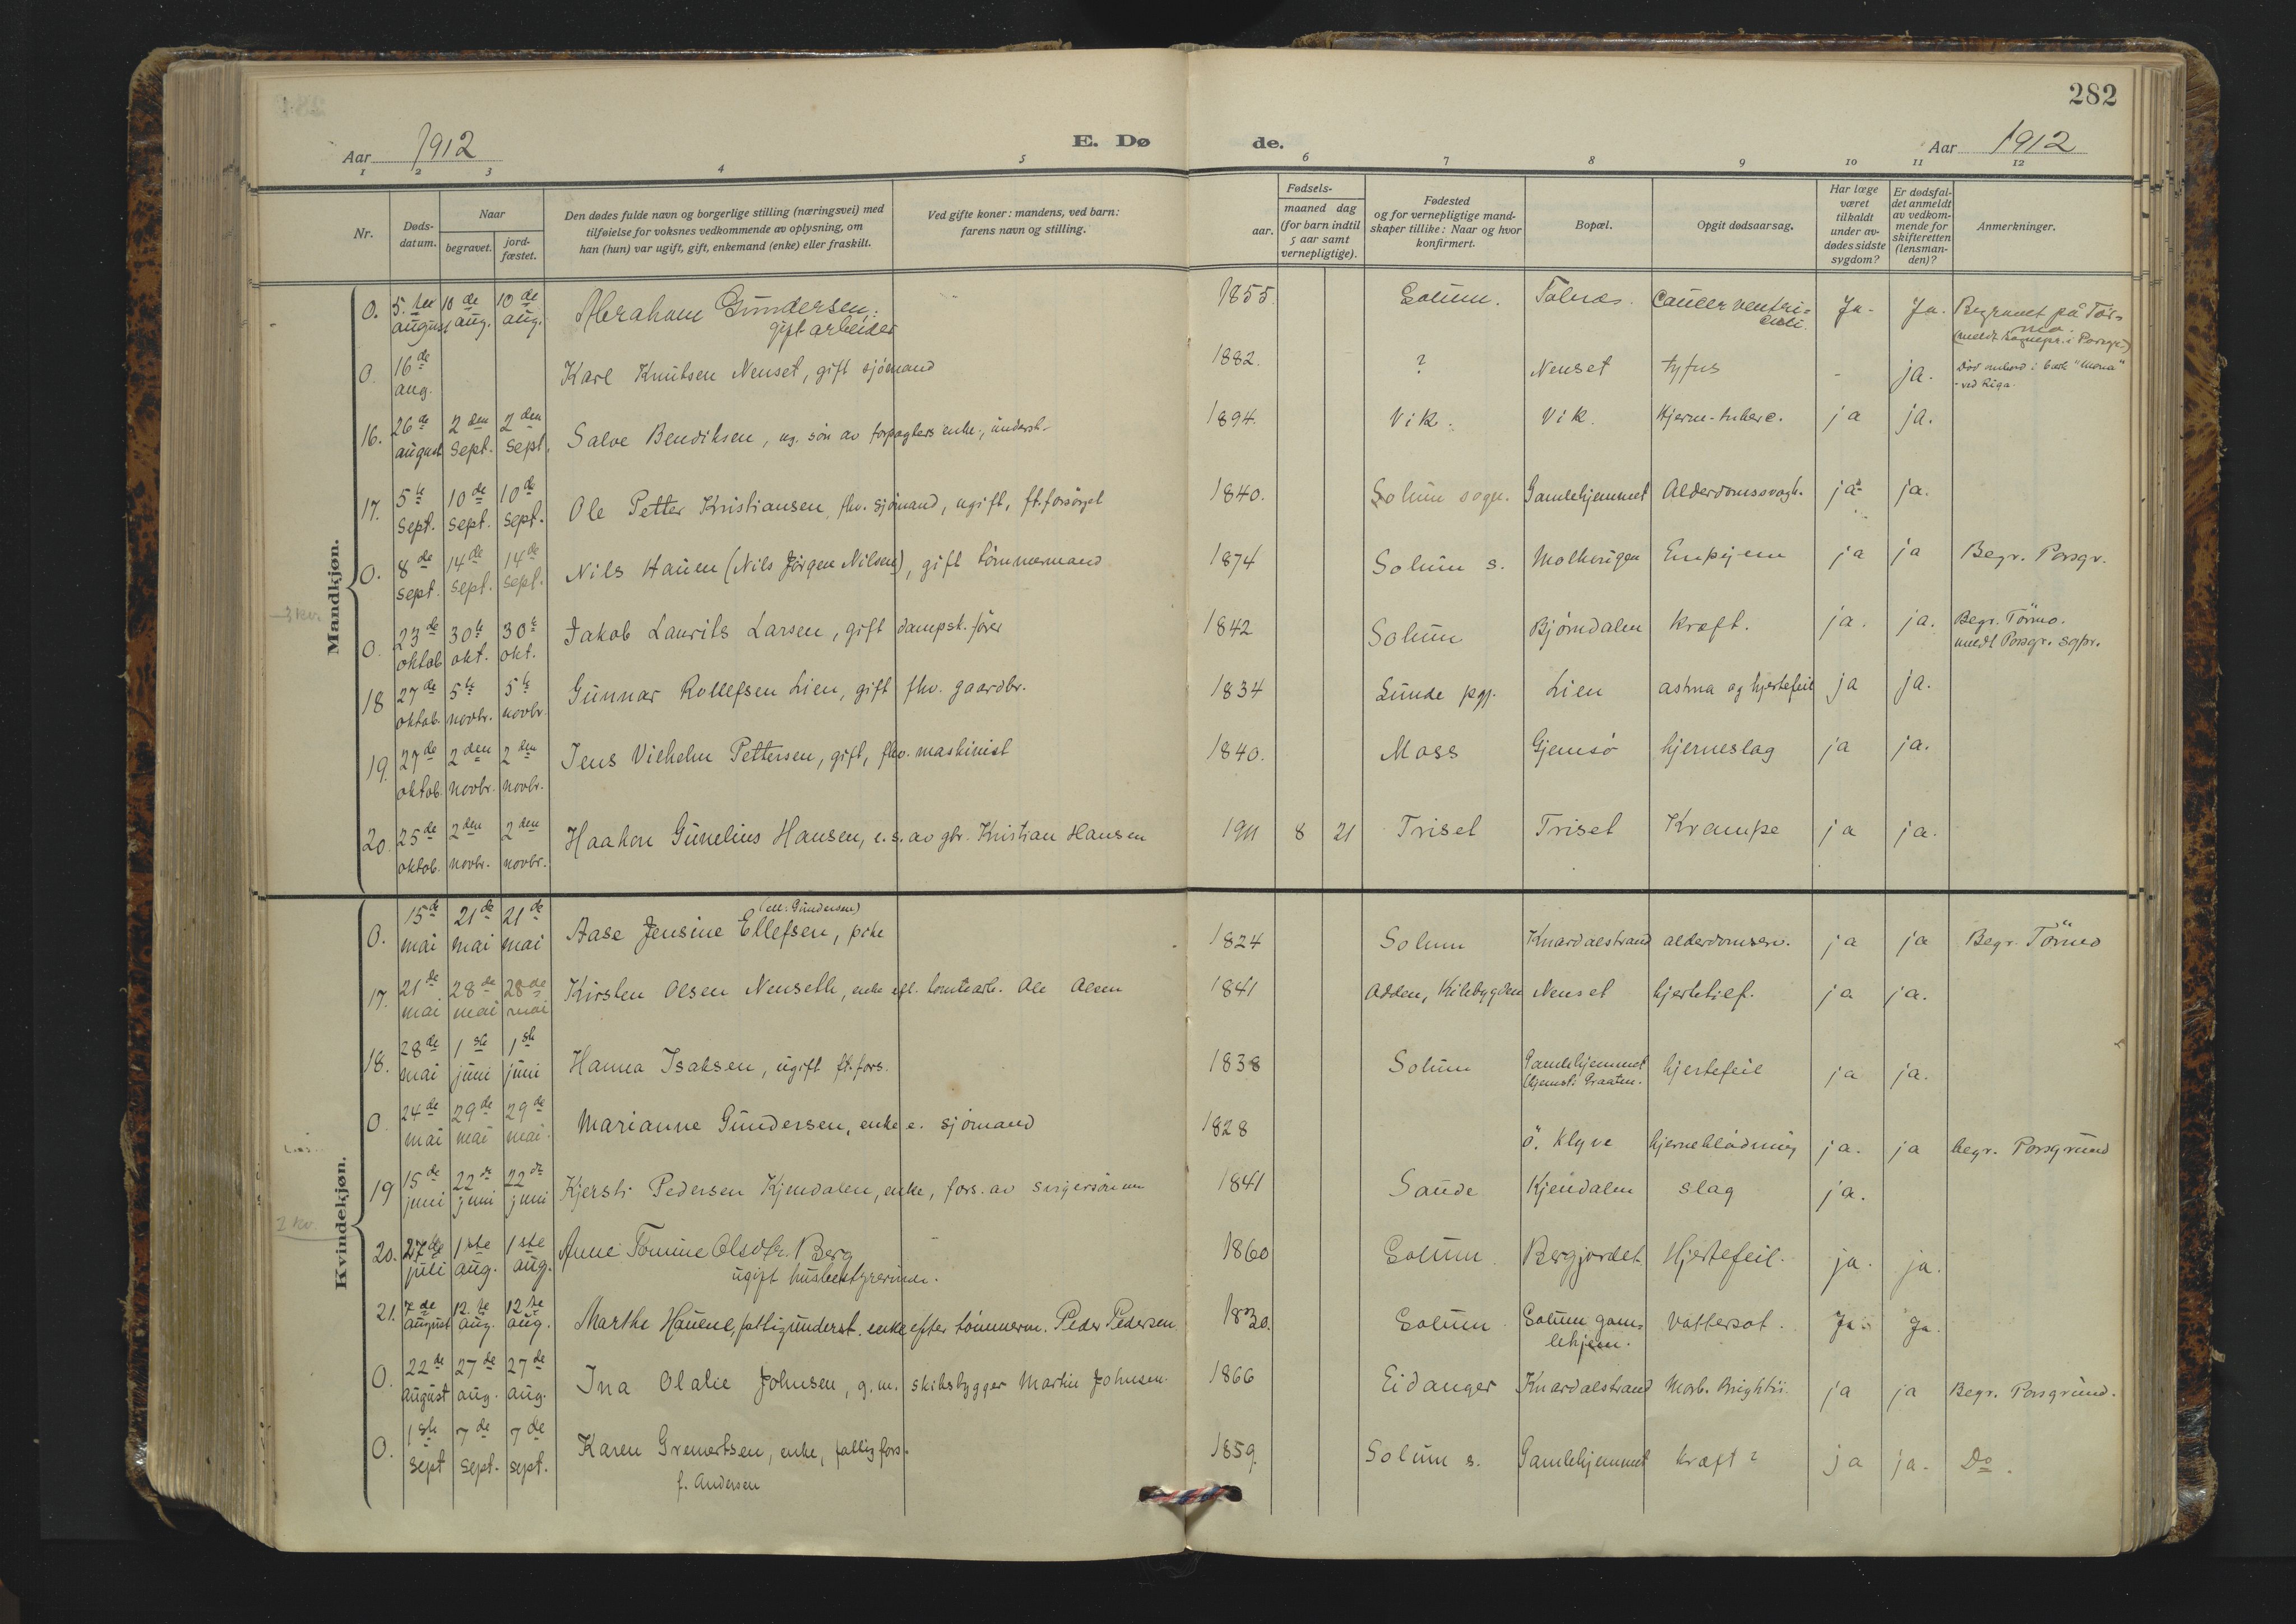 282
Aar 1912 E. Dø de. Aar 1912
1 2 3 4 5 6 7 8 9 10 11 12
Nr.
Døds-
datum.
Naar
begravet.
jord-
fæstet.
Den dødes fulde navn og borgerlige stilling (næringsvei) med
tilføielse for voksnes vedkommende av oplysning, om
han (hun) var ugift, gift, enkemand (enke) eller fraskilt.
Ved gifte koner: mandens, ved barn:
farens navn og stilling.
Fødsels-
aar.
maaned dag
(for barn indtil
5 aar samt
vernepligtige).
Fødested
og for vernepligtige mand-
skaper tillike: Naar og hvor
konfirmert.
Bopæl.
Opgit dødsaarsag.
Har læge
været
tilkaldt
under av-
dødes sidste
sygdom?
Er dødsfal-
det anmeldt
av vedkom-
mende for
skifteretten
(lensman-
den)?
Anmerkninger.
Mandkjøn.
0. 5.te august 10de aug. 10de aug. Abraham Gundersen, gift arbeider 1855. Solum. Tolnæs. Cancer ventri=
culi. Ja. Ja. Begravet på Tör=
mo.
(meldt sognepr. i Porsgr.)
0. 16de aug. Karl Knutsen Nenset, gift sjømand 1882. ? Nenset tyfus - ja. Död ombord i bark "Mona"
- ved Riga.
16. 26de august 2den Sept. 2den Sept. Salve Bendiksen, ug. søn av forpagters enke, underst. 1894. Vik. Vik. Hjerne-tuberc. ja ja.
17. 5te Sept. 10de Sept. 10de Sept. Ole Petter Kristiansen, fhv. sjømand, ugift, ft. forsørget 1840. Solum sogn. Gamlehjemmet Alderdomssvagh. ja ja.
0. 8de Sept. 14de Sept. 14de Sept. Nils Hauen (Nils Jörgen Nilsen), gift tömmermand 1874 Solum s. Molhaugen Empyem ja ja Begr. Porsgr.
0. 23de oktob. 30te okt. 30te okt. Jakob Laurits Larsen, gift dampsk. fører 1842 Solum Bjørndalen kræft. ja. ja. Begr. Törmo.
meldt Porsgr. sgpr.
18 27de oktob. 5te novbr. 5te novbr. Gunnar Rollefsen Lien, gift fhv. gaardbr. 1834 Lunde pgj. Lien astma og hjertefeil ja ja.
19. 27de oktob. 2den novbr. 2den novbr. Jens Vilhelm Pettersen, gift, fhv. maskinist 1840. Moss Gjemsö hjerneslag ja ja.
20. 25de oktob. 2den novbr. 2den novbr. Haakon Gunelius Hansen, e.s. av gbr. Kristian Hansen 1911 8 21 Triset Triset Krampe ja ja.
Kvindekjøn.
0. 15de mai 21de mai 21de mai Aase Jensine Ellefsen (ell. Gundersen), pike 1824 Solum Knardalstrand alderdomssv. ja ja Begr. Törmo
17. 21de mai 28de mai 28de mai Kirsten Olsen Nenseth, enke eft. tomtearb. Ole Olsen 1841 Odden, Kilebygden Nenset hjertelief. ja ja.
18. 28de mai 1ste juni 1ste juni Hanna Isaksen, ugift ft. fors. 1838 Solum Gamlehjemmet
(hjemst. Graaten. hjertefeil ja ja.
0. 24de mai 29de mai 29de mai. Marianne Gundersen, enke e. sjømand 1828 ö. Klyve hjerneblödning ja. ja begr. Porsgrund
19 15de juni 22de juni 22de juni Kjersti Pedersen Kjendalen, enke, fors. av svigersönnen 1841 Saude Kjendalen slag ja.
20. 27de juli 1ste aug. 1ste aug. Anne Tomine Olsdtr. Berg
ugift husbestyrerinde. 1860 Solum Bergjordet Hjertefeil. ja. ja.
21. 7de august 12.te aug. 12te aug. Marthe Hauene, fattigunderst. enke efter tømmerm. Peder Pedersen 1830. Solum Solum gam=
lehjem. Vattersot. Ja. Ja.
0. 22de august 27de aug. 27de aug. Ina Olalie Johnsen, g.m. skibsbygger Martin Johnsen. 1866 Eidanger Knardalstrand Morb. Brightii. ja ja Begr. Porsgrund.
0. 1ste Sept 7de Sept. 7de Sept. Karen Gremertsen, enke, fattigfors.
f. Andersen 1859. Solum s. Gamlehjemmet kræft? ja ja. Do.